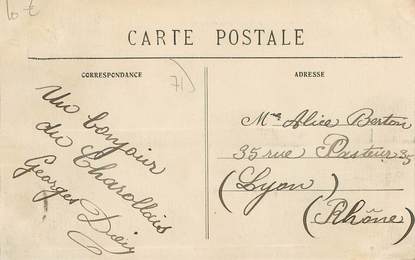 10 €
CARTE POSTALE
CORRESPONDANCE
71
ADRESSE
Un bonjour
du Charollais
Georges
Alice Berton
35 rue Pasteur 35
(Lyon)
(Rhône)